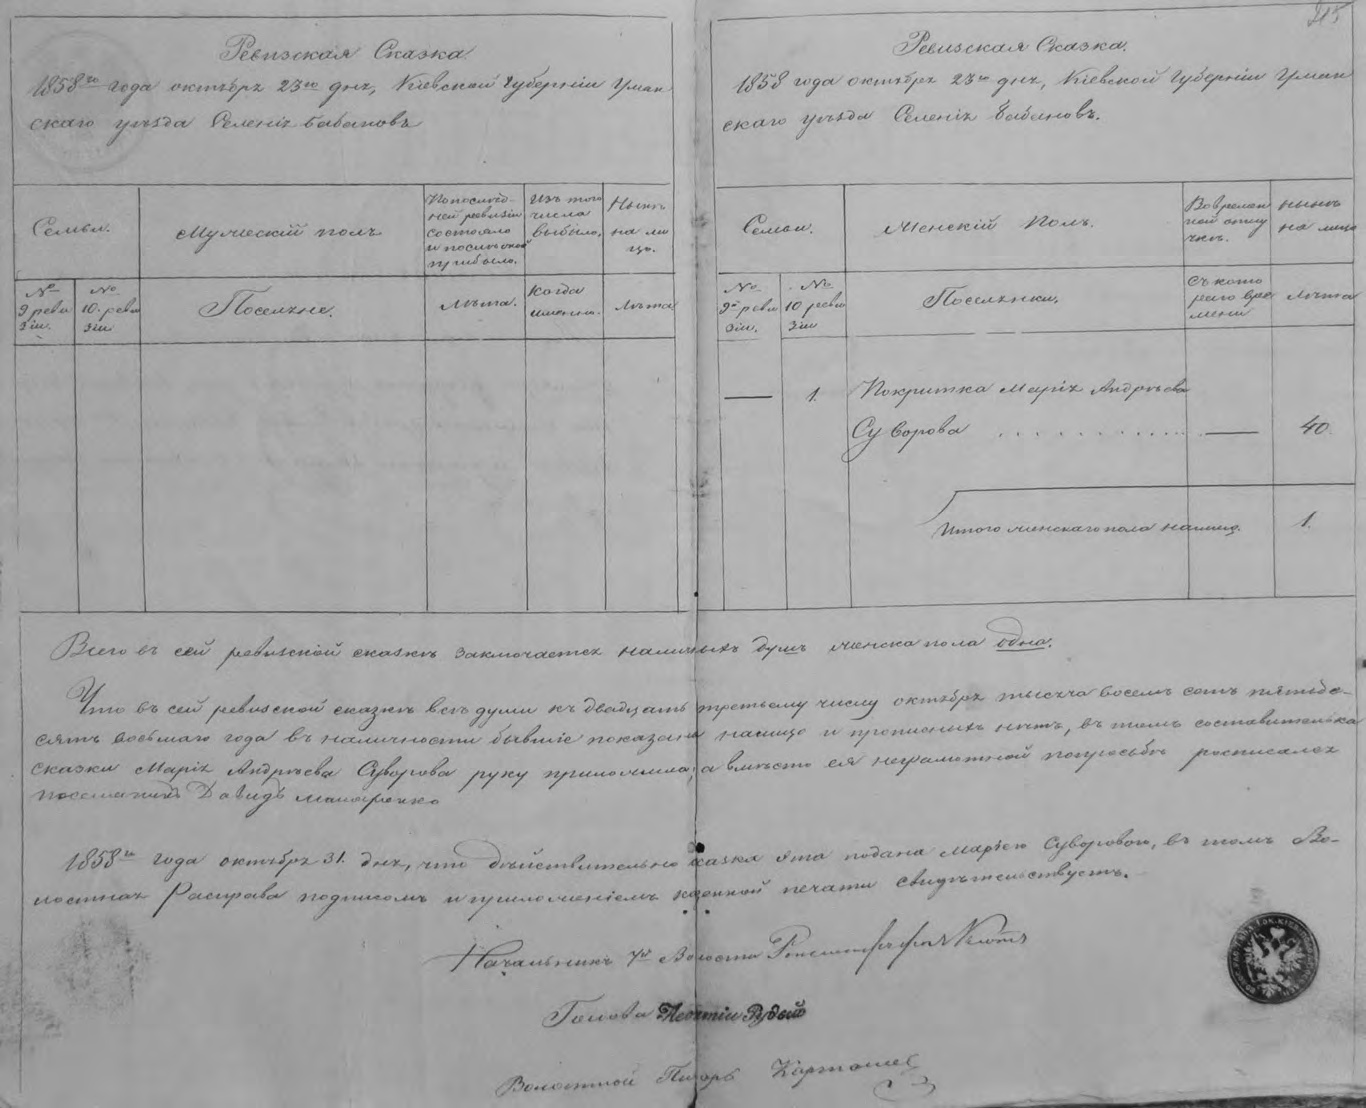 215
Ревизская Сказка
1858го года октября 23го дня, Кіевской Губерніи Уман
скаго уѣзда Селенія Бабановъ
Семьи.
Мужескій полъ
Попослѣд-
ней ревизіи
состояло
и послѣ оной
прибыло.
Изъ того
числа
выбыло.
Нынѣ
на ли
цо.
№
9 реви
зіи.
№
10. реви
зіи
Поселяне.
Лѣта.
Когда
именно.
Лѣта
Ревизская Сказка.
1858 года октября 23го дня, Кіевской Губерніи Уман
скаго уѣзда Селенія Бабановъ.
Семьи.
Женскій Полъ.
Во времен
ной отлу
чкѣ.
нынѣ
на лицо
№
9й реви
зіи.
№
10 реви
зіи
Поселянки.
Съ кото
раго вре
мени
Лѣта
— 1. Покритка Марія Андрѣева
Суворова . . . . . . . . . . . — 40
Итого женскаго пола налицо. 1.
Всего въ сей ревизской сказкѣ заключается наличныхъ душъ женска пола одна.
Что въ сей ревизской сказкѣ всѣ души къ двадцать третьему числу октября тысяча восемь сотъ пятьде-
сятъ восьмаго года въ наличности бывшіе показаны налицо и прописныхъ нѣтъ, въ томъ составителька
сказки Марія Андрѣева Суворова руку приложила, а вмѣсто ея неграмотной попросьбѣ росписался
поселянинъ Давидъ
1858го года октября 31. дня, что дѣйствительно сказка эта подана Маріею Суворовою, въ томъ Во-
лостная Расправа подписомъ и приложеніемъ казенной печати свидѣтельствуетъ.
Начальникъ Волости
Голова Рудый
Волостной Писарь